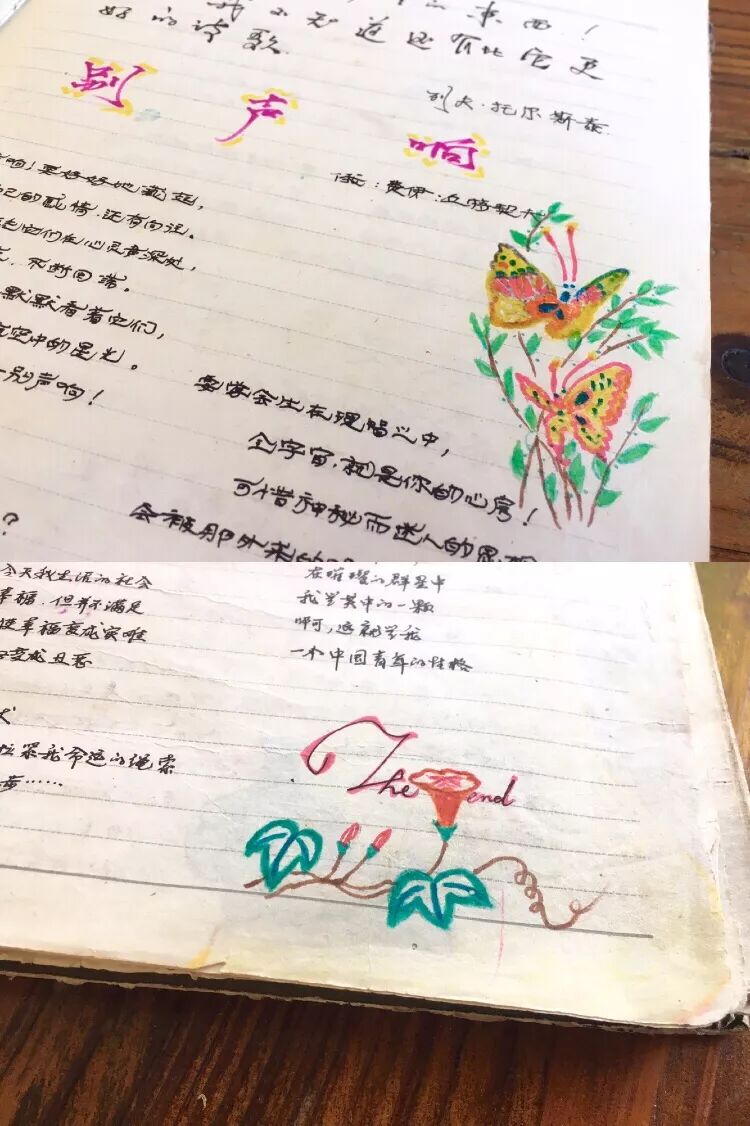 东西！
我不知道还有比它更
好的诗歌
列夫·托尔斯泰
别声响
俄：费伊·丘特契夫
响！要好好地藏起，
己的感情，还有向往。
它们在心灵深处，
不断回荡。
默默看着它们，
空中的星光。
别声响！
要学会生在理想之中，
全宇宙，就是你的心房！
可惜神秘而迷人的思想
会被那外来的
？
今天我生活的社会
幸福，但并不满足
幸福变成实难
变成丑恶
我命运的绳索
步……
在璀璨的群星中
我是其中的一颗
啊，这就是我
一个中国青年的性格
The end